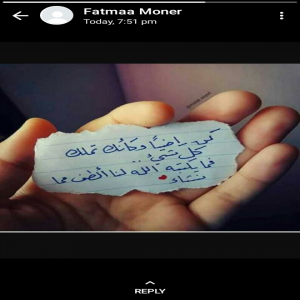 Fatmaa Moner
Today, 7:51 pm
كن راضيًا وكأنك تملك
كل شيء..
فما يكتبه الله لنا ألطف مما
نشاء
REPLY